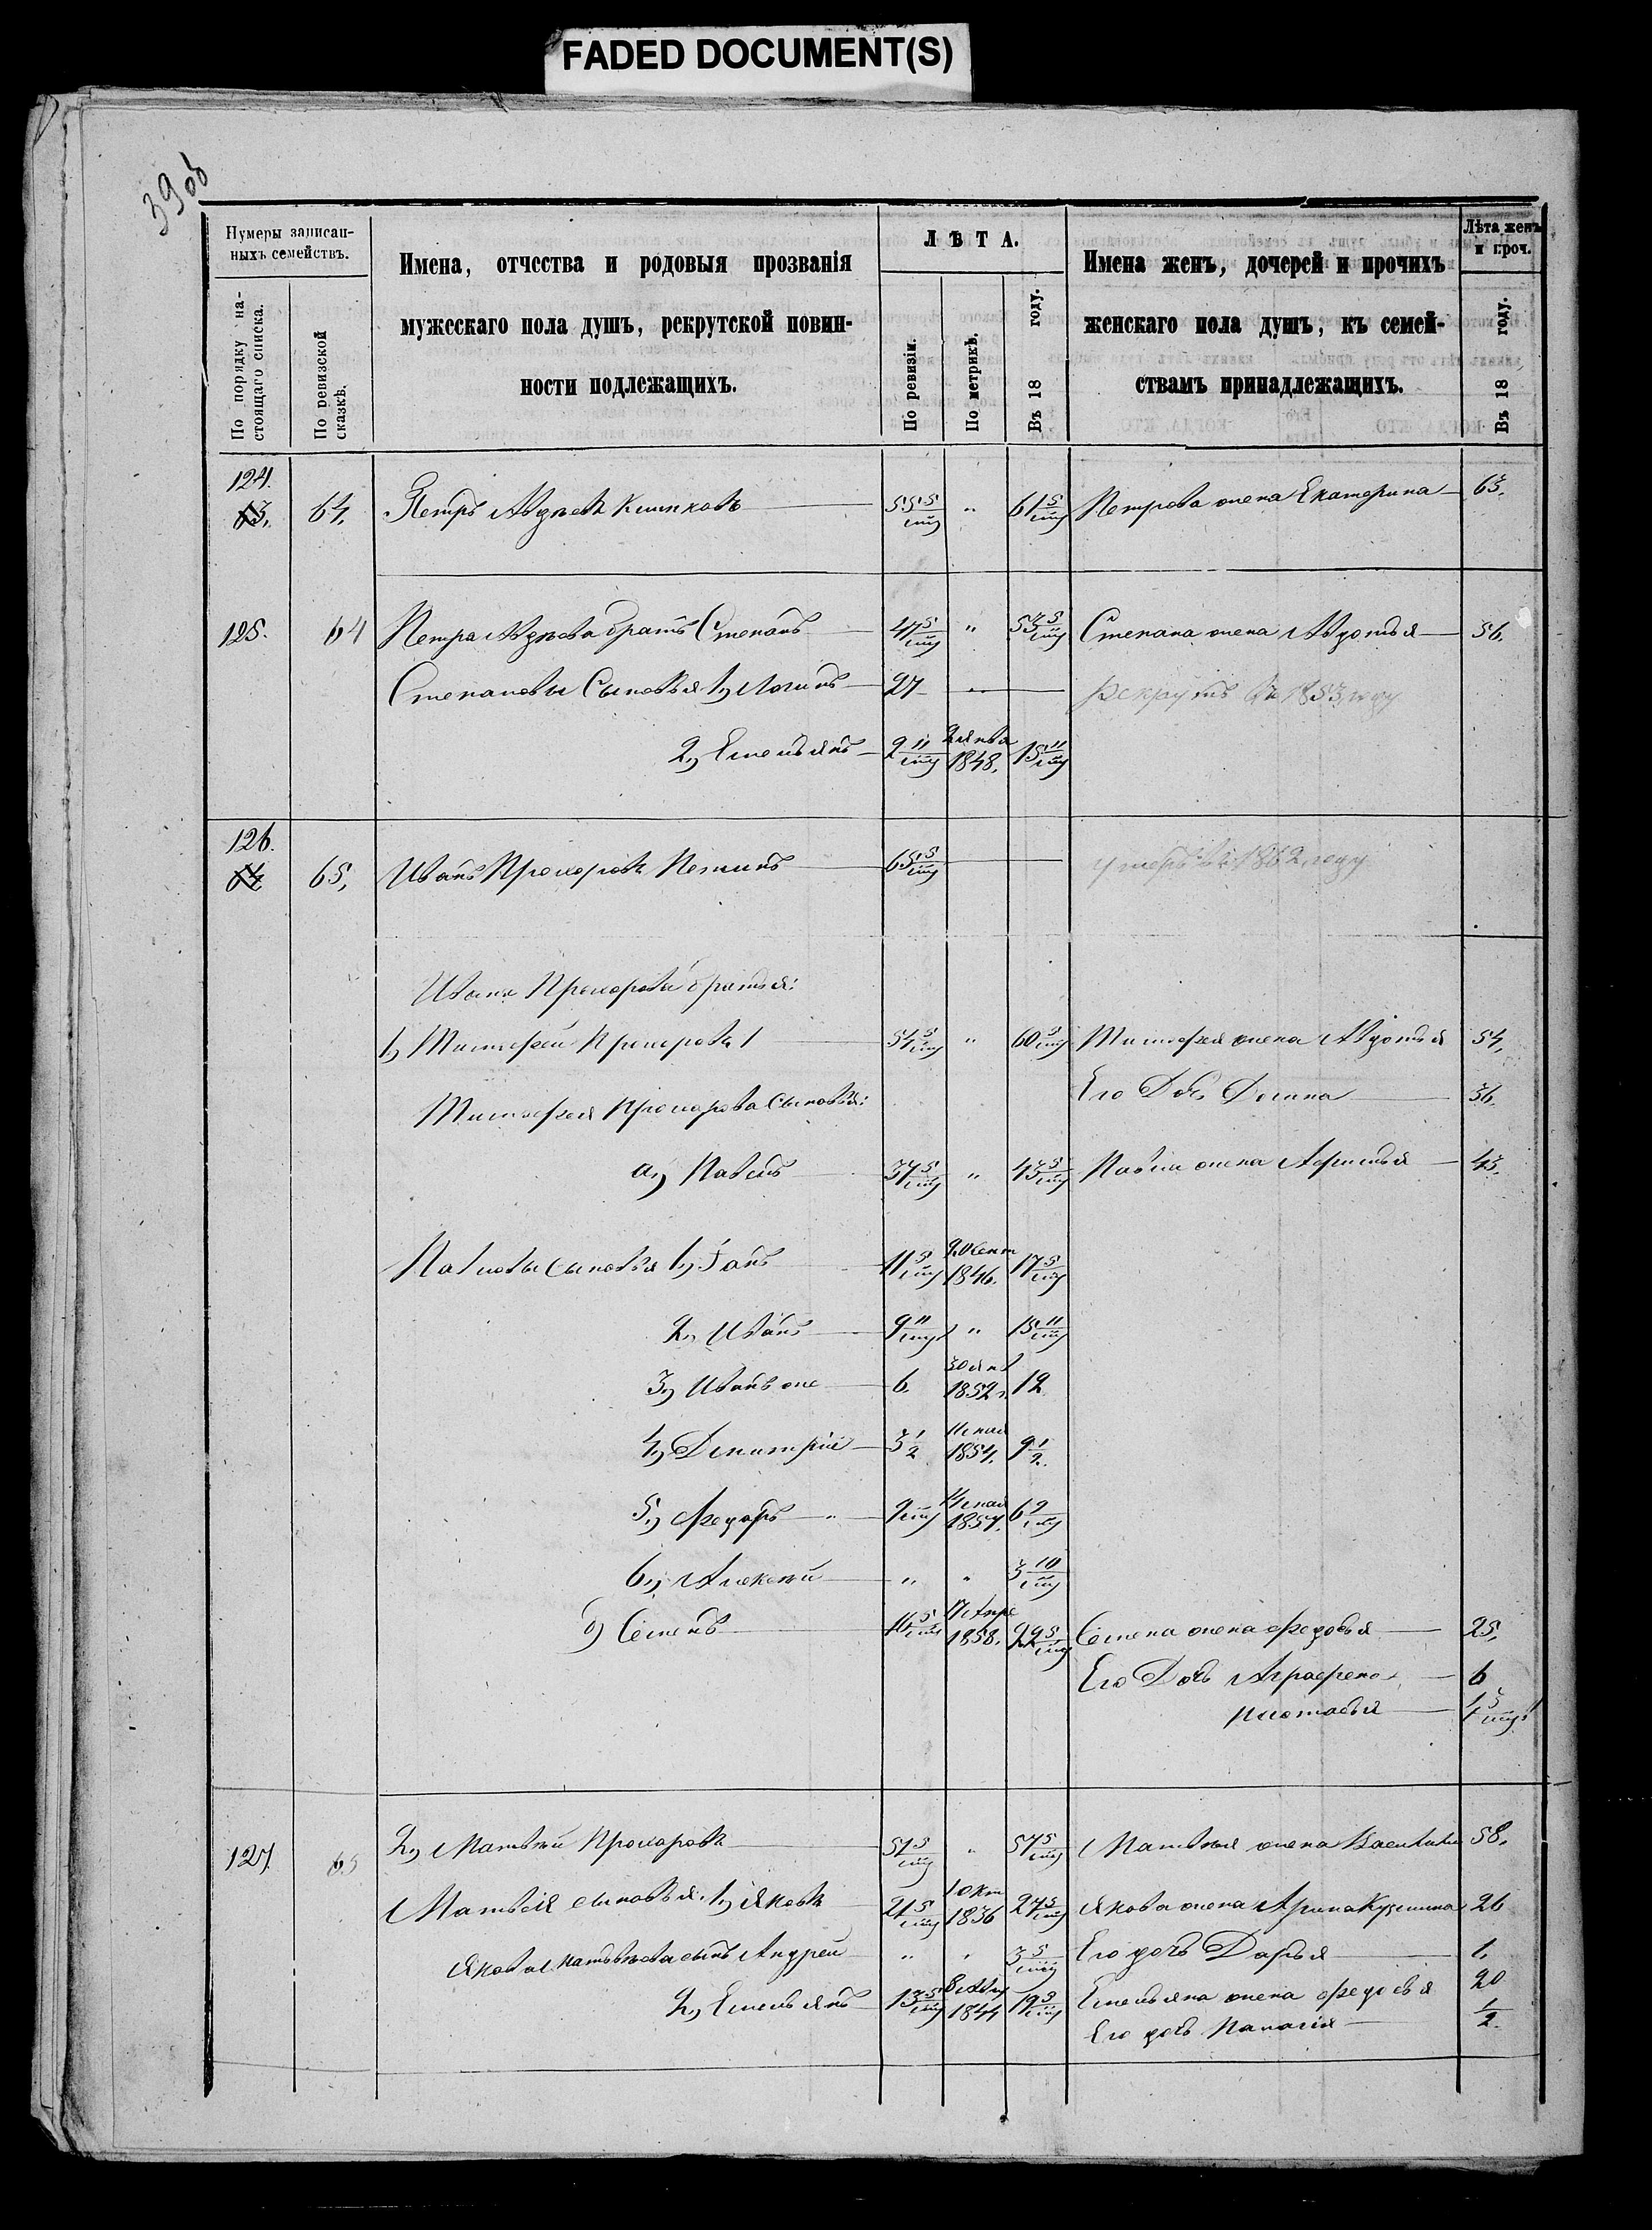 FADED DOCUMENT(S)
39 об
Нумеры записан-
ныхъ семействъ.
По порядку на-
стоящаго списка.
По ревизской
сказкѣ.
Имена, отчества и родовыя прозванія
мужескаго пола душъ, рекрутской повин-
ности подлежащихъ.
ЛѢТА.
По ревизіи.
По метрикѣ.
Въ 18 году.
Имена женъ, дочерей и прочихъ
женскаго пола душъ, къ семей-
ствамъ принадлежащихъ.
Лѣта женъ
и проч.
Въ 18 году.
124.
63, 64, Петръ Авдѣевъ 55 5/мц " 61 5/мц Петрова жена Екатерина 63.
125. 64 Петра Авдѣева братъ Степанъ 47 5/мц " 53 5/мц Степана жена Авдотья 56.
Степановы Сыновья 1, Логинъ 27 " рекрутъ въ 1853 году
2, Емельянъ 9 11/мц 2 янва 1848. 15 11/мц
126.
64 65, Иванъ Прохоровъ 65 5/мц умеръ въ 1862 году
Ивана Прохорова братья:
1, Тимофей Прохоровъ 54 5/мц " 60 5/мц Тимофея жена Авдотья 54,
Его Дочь Домна 36.
Тимофея Прохорова сыновья:
а, Павелъ 37 5/мц " 43 5/мц Павла жена Афимья 43.
Павловы сыновья 1, 11 5/мц 20 Сент 1846. 17 5/мц
2, Иванъ 9 11/мц " 15 11/мц
3, Иванъ же 6. 30 янв 1852 г. 12
4, Дмитрій 3 1/2 11 мая 1854. 9 1/2.
5, Федоръ " 9 мц 14 мая 1857. 6 9/мц
6, Алексѣй " " 3 10/мц
б, Семенъ 16 5/мц 17 Апре 1858. 22 5/мц Семена жена Федосья 25,
Его Дочь Аграфена 6
1 5/мц
127. 65 2, Матвѣй Прохоровъ 51 5/мц " 57 5/мц Матвѣя жена Василиса 58.
Матвѣя сыновья: 1, Яковъ 21 5/мц 1 Окт 1836 27 5/мц Якова жена Арина Кузмина 26
Якова Матвѣева сынъ Андрей " " 3 5/мц Его дочь Дарья 1.
2, Емельянъ 13 5/мц 8 Авг 1844 19 5/мц Емельяна жена Федосья 20
Его дочь Палагія 1/2.